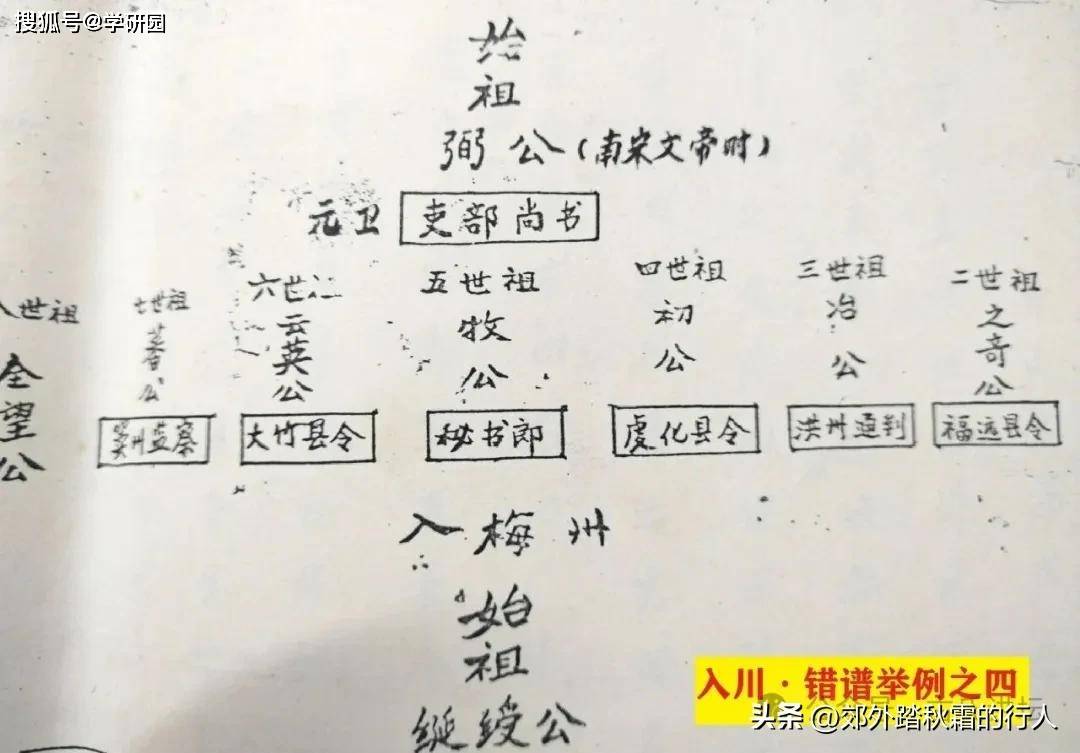 搜狐号@学研园
始祖
弼公(南宋文帝时)
元卫 吏部尚书
二世祖
之奇公
福远县令
三世祖
冶公
洪州通判
四世祖
初公
虔化县令
五世祖
牧公
秘书郎
六世
云英公
大竹县令
七世祖
蓍公
州监察
八世祖
全望公
入梅州
始祖
綖绶公
入川·错谱举例之四
头条@郊外踏秋霜的行人